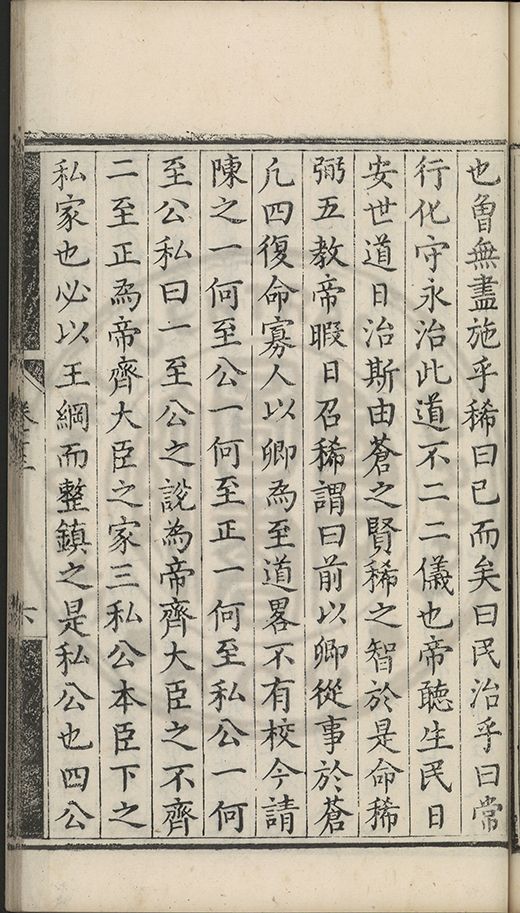 也曾無盡施乎稀曰已而矣曰民治乎曰常
行化守永治此道不二二儀也帝聽生民日
安世道日治斯由蒼之賢稀之智於是命稀
弼五教帝暇日召稀謂曰前以卿從事於蒼
凡四復命寡人以卿為至道畧不有校今請
陳之一何至公一何至正一何至私公一何
至公私曰一至公之說為帝齊大臣之不齊
二至正為帝齊大臣之家三私公本臣下之
私家也必以王綱而整鎮之是私公也四公
卷三
六